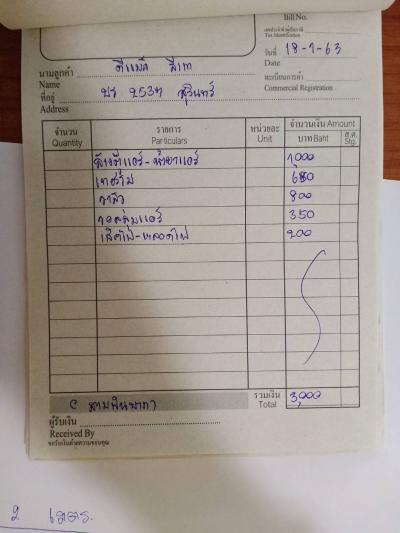 Bill No.
เลขประจำตัวผู้เสียภาษี
Tax Identification
วันที่ 18-7-63
Date
นามลูกค้า ดีแม็ก สีเทา
Name
ทะเบียนการค้า
Commercial Registration
ที่อยู่ บร 2537 สุรินทร์
Address
จำนวน รายการ หน่วยละ จำนวนเงิน Amount
Quantity Particulars Unit บาท Baht ส.ต. Stg.
ล้างตู้แอร์-น้ำยาแอร์ 1000
650
วาล์ว 800
350
200
C สามพันบาท
รวมเงิน 3,000
Total
ผู้รับเงิน
Received By
ขอรับเงินด้วยความขอบคุณ
2